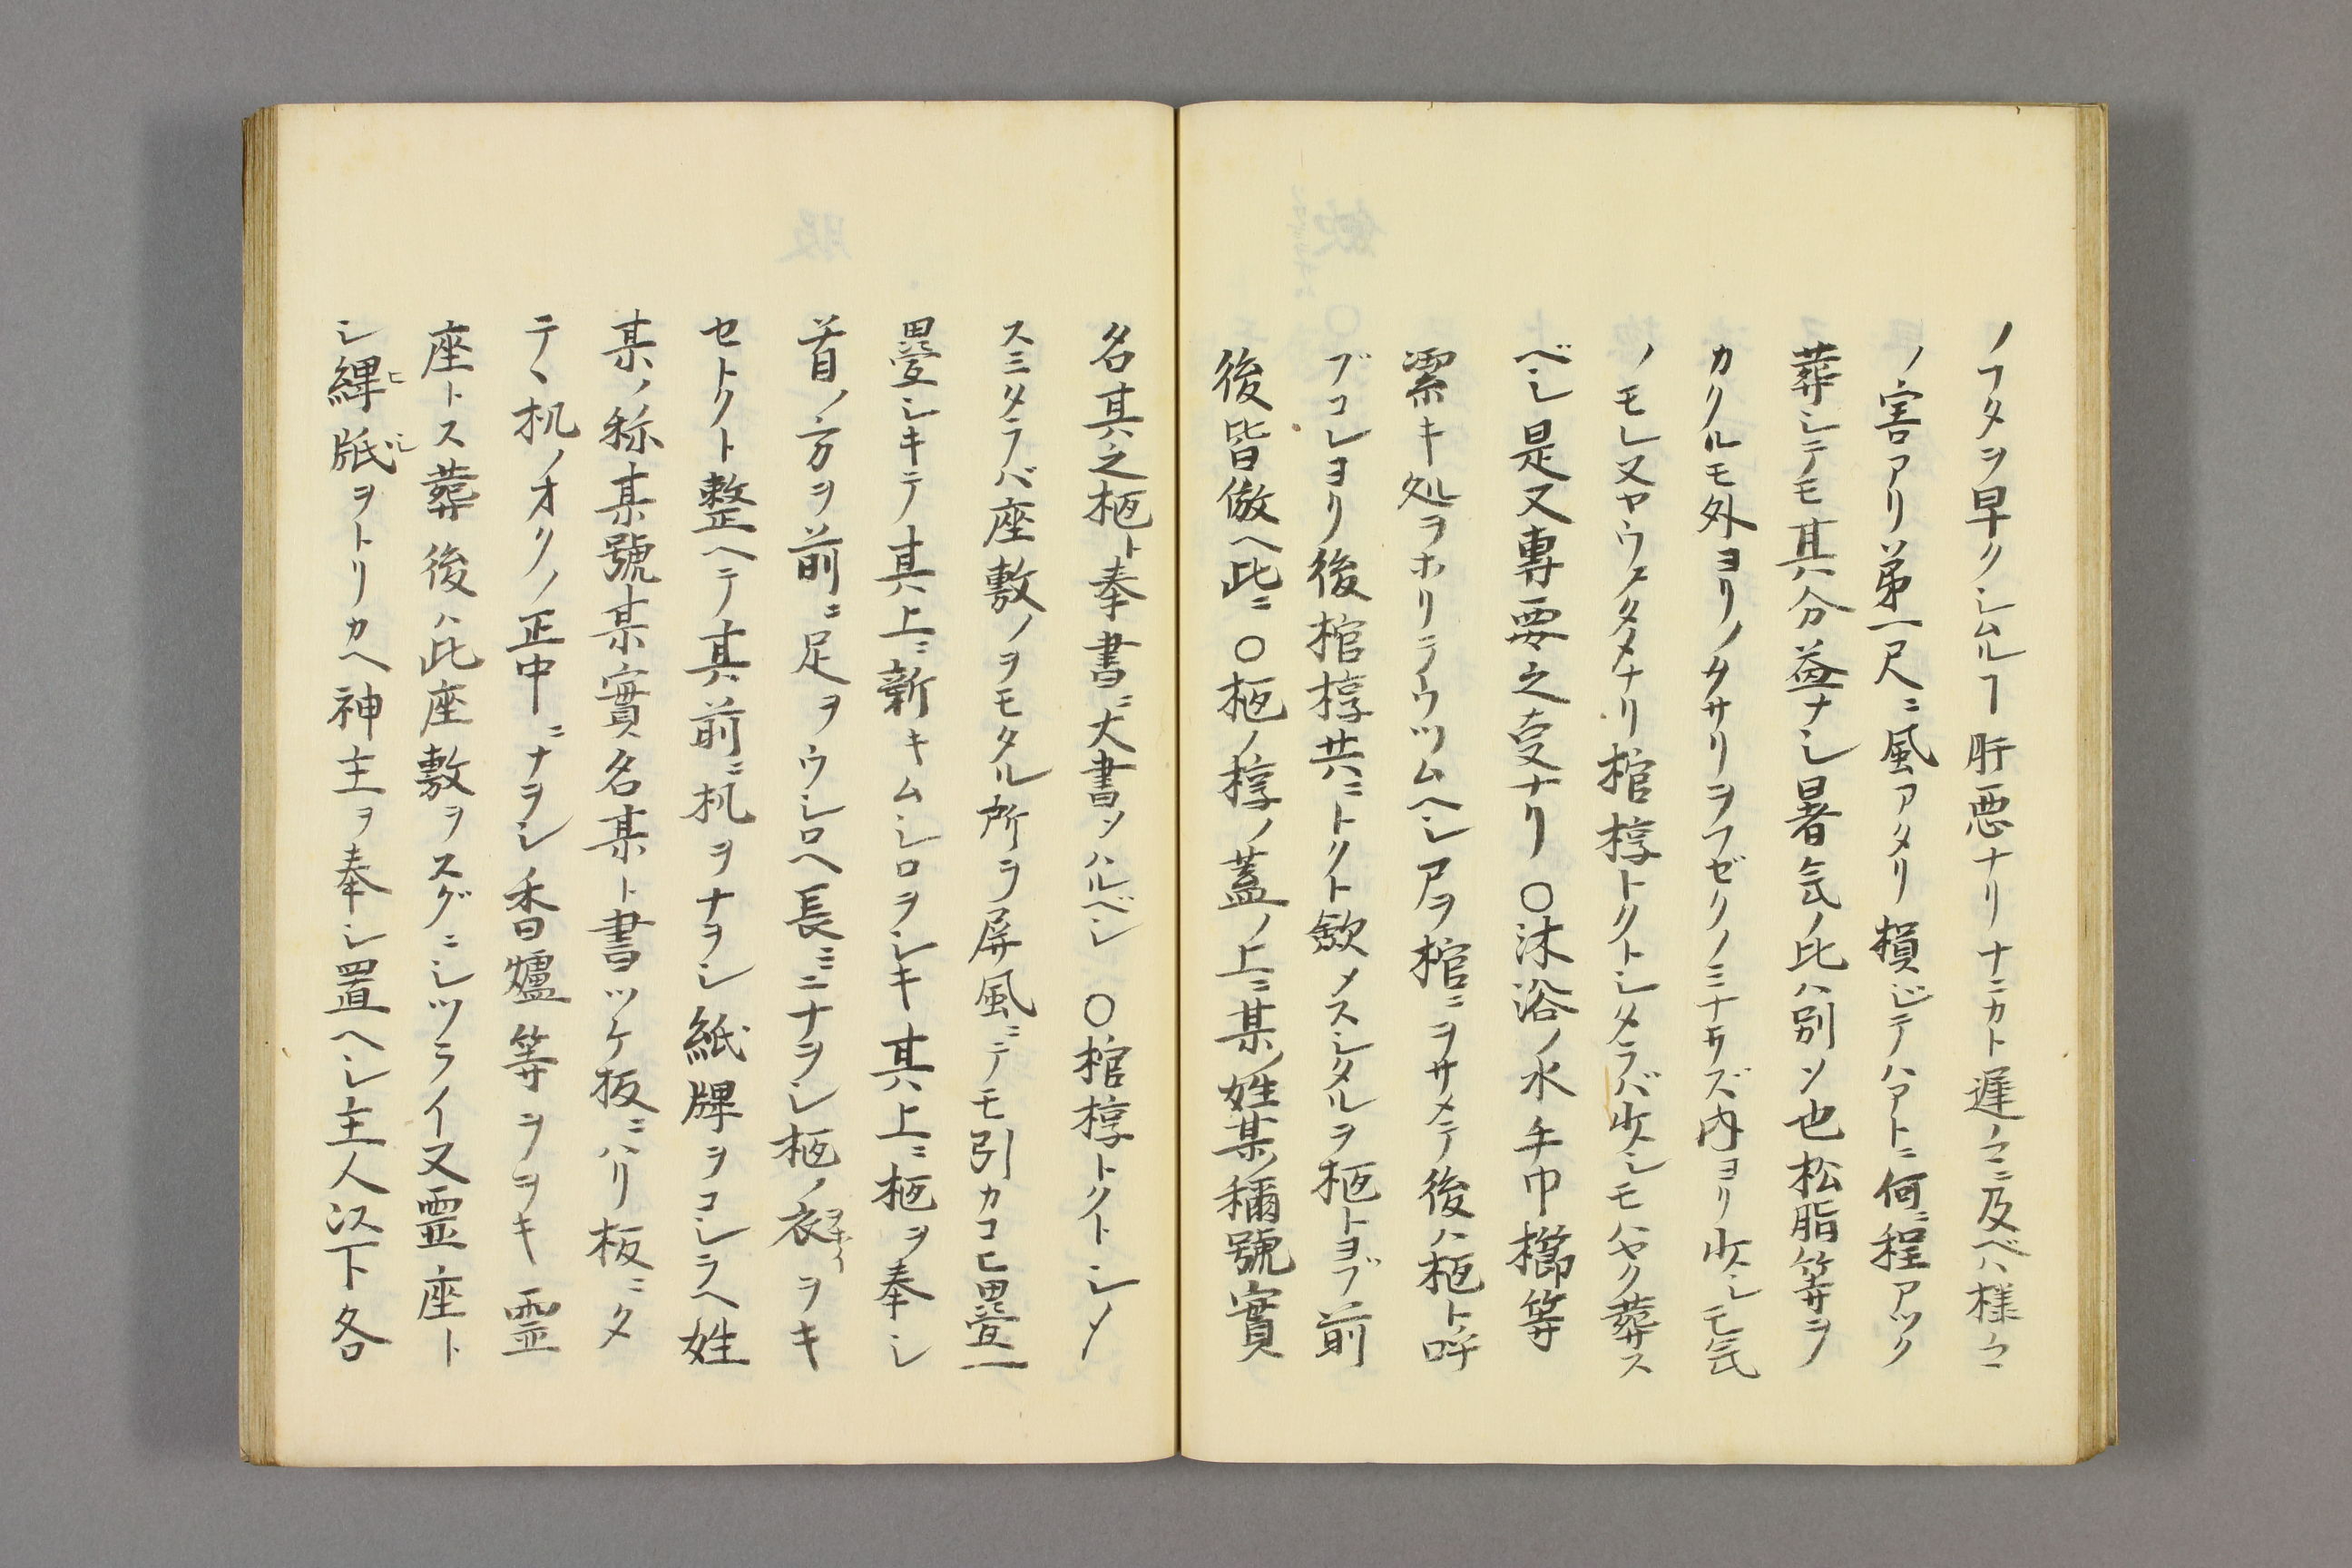 ノフタヲ早クシムルヿ肝悪ナリナニカト遅々ニ及ベハ様々
ノ害アリ第一尺ニ風アタリ損ジテハアトニ何ニ程アツク
葬シテモ其分益ナシ暑気ノ比ハ別ソ也松脂等ヲ
カクルモ外ヨリノクサリヲフゼクノミナラズ内ヨリ少シモ気
ノモレ又ヤウスタメナリ棺椁トクトシタラバ少シモハヤク葬ス
ベシ是又専要之叓ナリ○沐浴ノ水手巾櫛等
潔キ処ヲホリテウツムヘシ尸ヲ棺ニヲサメテ後ハ柩ト呼
ブコレヨリ後棺椁共ニトクト歛メスシタルヲ柩トヨブ前
後皆倣ヘ此ニ○柩ノ椁ノ蓋ノ上ニ某ノ姓某稱號實
名其之柩ト奉書ニ大書ソハルベシ○棺椁トクトシメ
スミタラバ座敷ノヲモタル所ヲ屏風ニテモ引カコヒ疊一
疊シキテ其上ニ新キムシロヲシキ其上ニ柩ヲ奉シ
首ノ方ヲ前ニ足ヲウシロヘ長ニニナヲシ柩ノ衣ヲキ
セトクト整ヘテ其前ニ机ヲナヲシ紙牌ヲコシラヘ姓
某ノ称某號某實名某ト書ツケ板ニハリ板ニタ
テヽ机ノオクノ正中ニナヲシ香爐等ヲヲキ霊
座トス葬後ハ此座敷ヲスグニシツライ又霊座ト
シ縪䏡ヲトリカヘ神主ヲ奉シ置ヘシ主人以下各